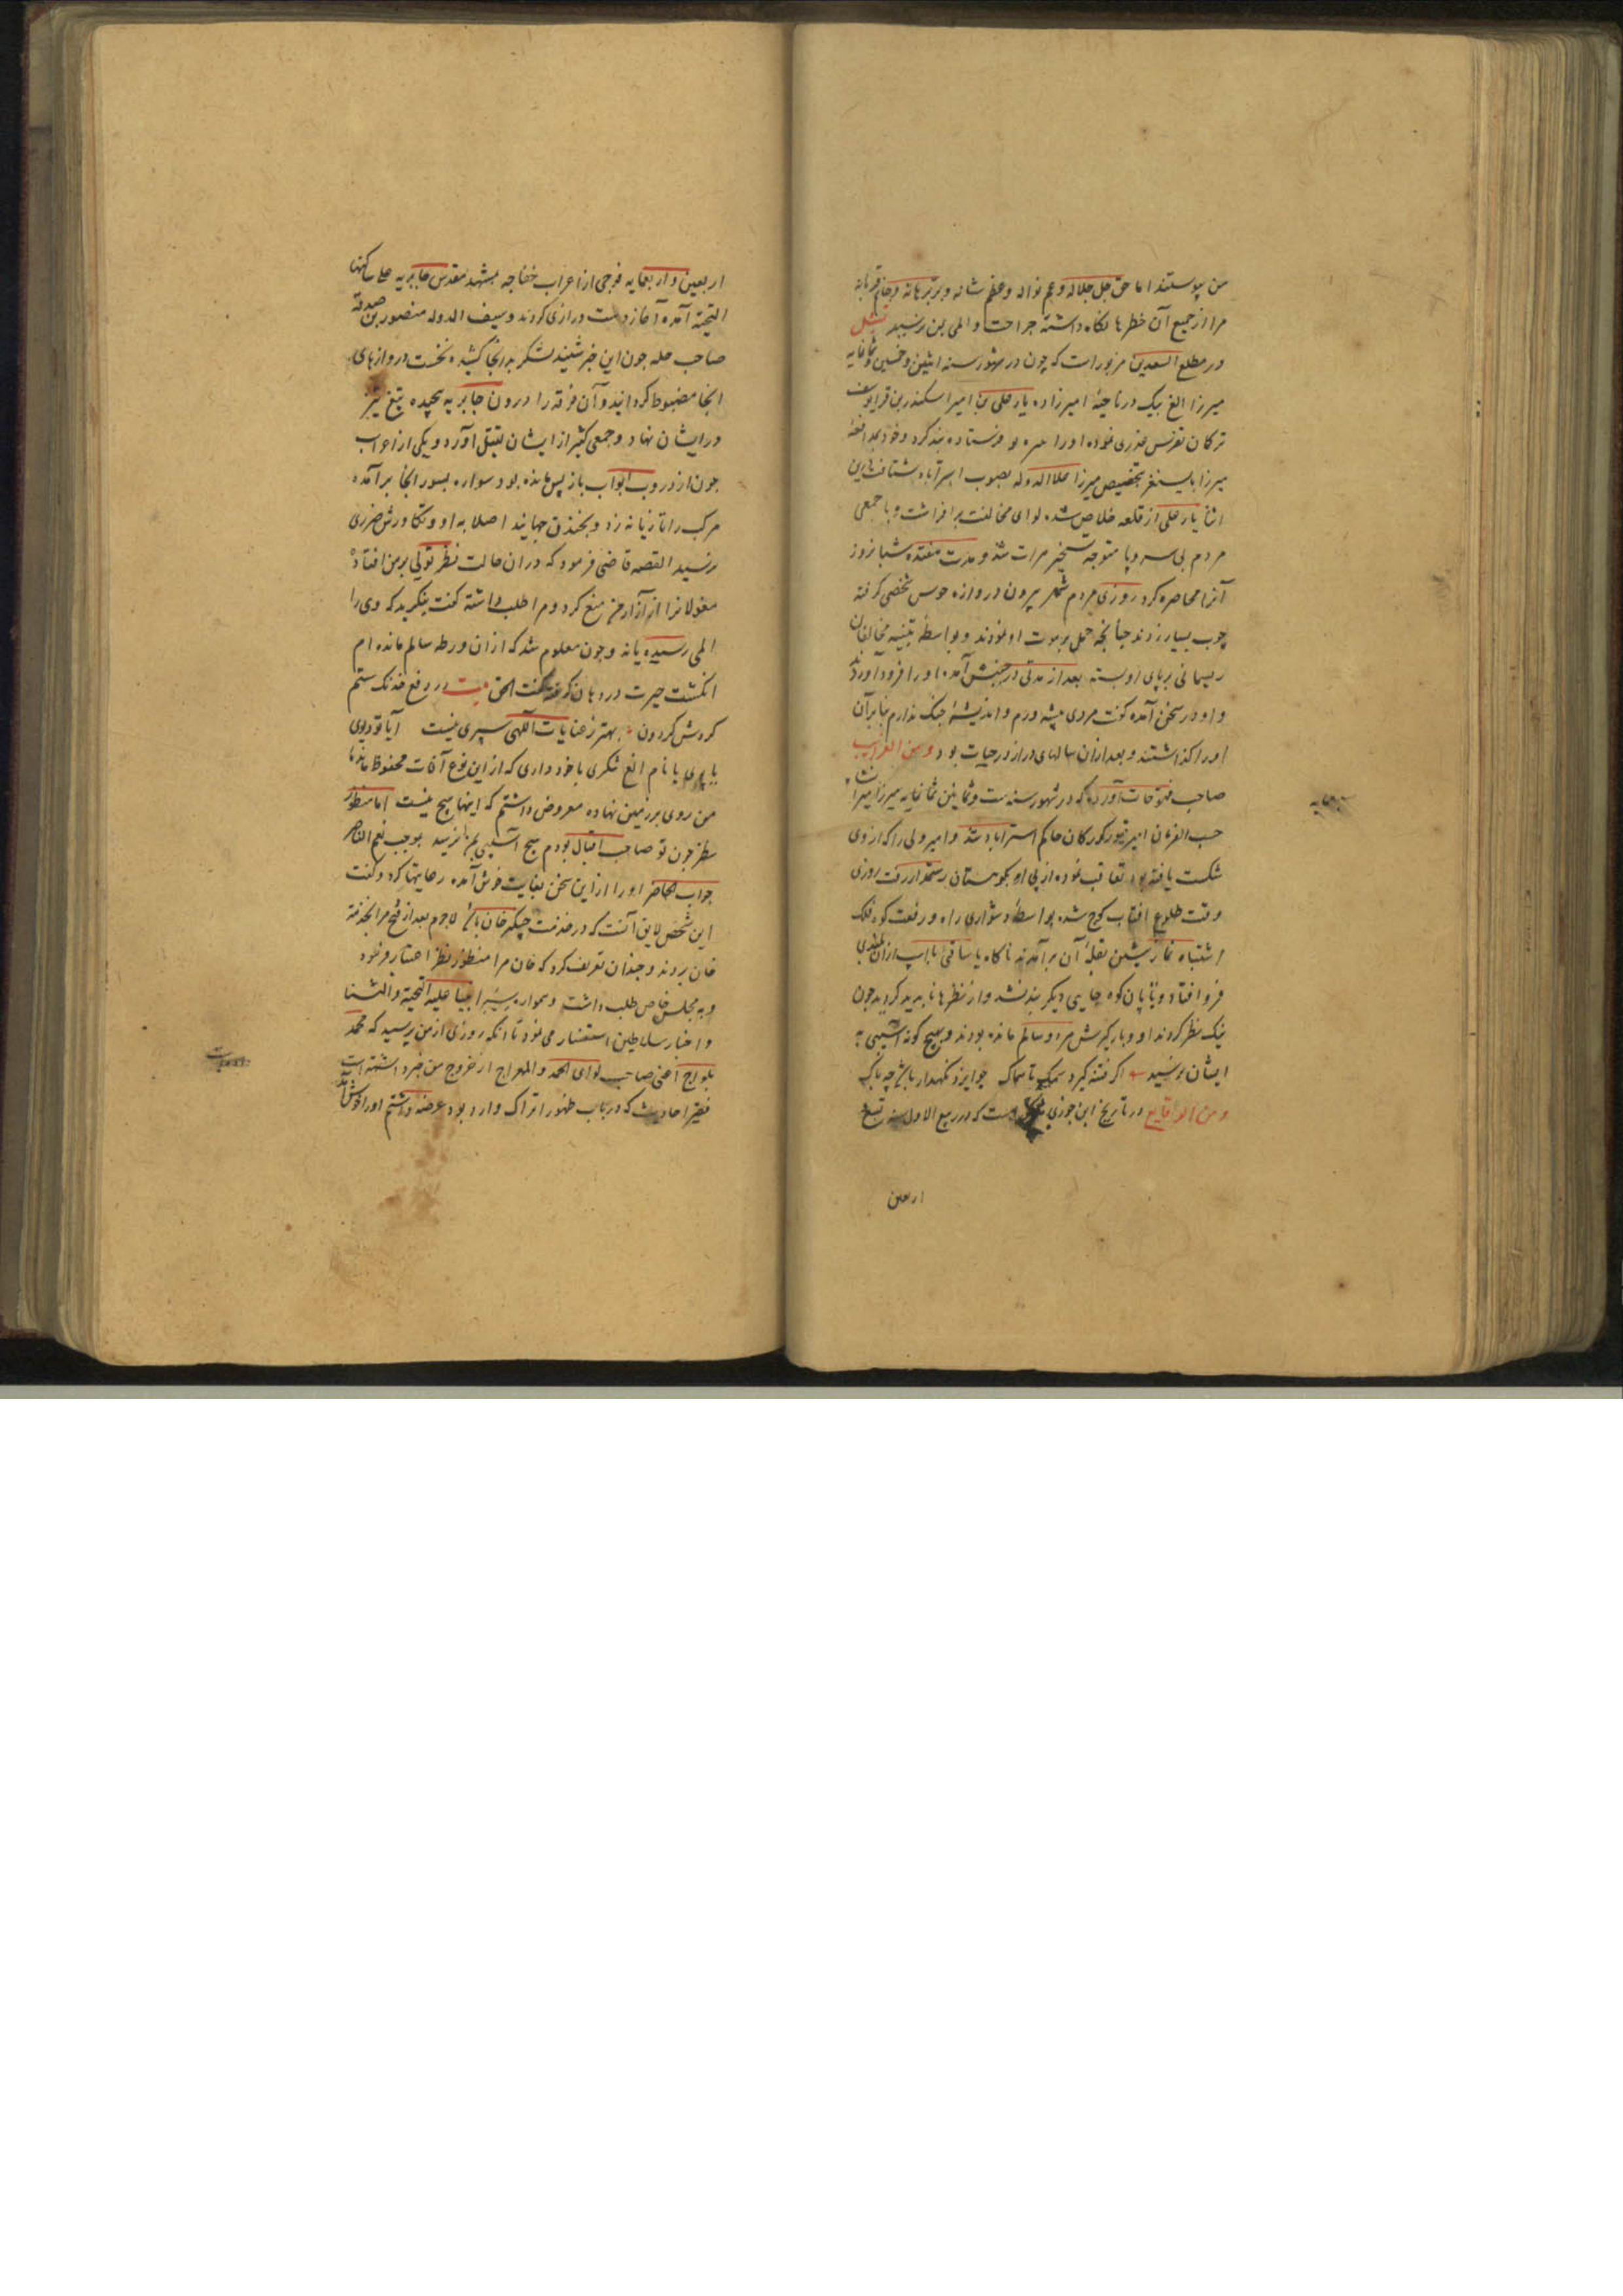 من پیوستند اما حق جل جلاله و عم نواله و عظم شانه و برهانه
مرا از جمیع آن خطرها نگاه داشته جراحت و المی بمن نرسید نقل
در مطلع السعدین مزبور است که چون در شهور سنه اثنین و خمسین و ثمانمایه
میرزا الغ بیک در ناحیهٔ امیرزاده یار علی بن امیر اسکندر بن قرا یوسف
ترکمان تفرس نموده او را بند کرد و خود
میرزا بایسنغر میرزا علاء الدوله بصوب استرآباد شتافت درین
اثنا یار علی از قلعه خلاص شده لوای مخالفت برافراشت و با جمعی
مردم بی سر و پا متوجه تسخیر هرات شد و مدت هفده شبانروز
آنرا محاصره کرد روزی مردم شهر بیرون دروازه شخصی گرفته
چوب بسیار زدند چنانچه حمل بر موت او نمودند و بواسطهٔ تنبیه مخالفان
ریسمانی بر پای او بسته بعد از مدتی در جنبش آمده او را فرود آوردند
و او در سخن آمده گفت مردی پیشه ورم و اندیشهٔ جنگ ندارم بنابرآن
او را گذاشتند و بعد از آن سالهای دراز در حیات بود و من الغرایب
صاحب فتوحات آورده که در شهور سنه ست و ثمانین ثمانمایه میرزا میرانشاه
حسب الفرمان امیر تیمور کورکان حاکم استراباد شد و امیر ولی را که از وی
شکست یافته بود تعاقب نموده از پی او بکوهستان رستمدار رفت روزی
وقت طلوع افتاب کوچ شده بواسطهٔ دشواری راه و رفعت کوه فلک
اشتباه نماز پیشین بقلهٔ آن برآمدند ناکاه یا ساقی با اسپ ازان بلندی
فرو افتاد و تا پایان کوه جایی دیگر بند نشد و از نظرها ناپدید گردید چون
نیک نظر کردند او و بارگیرش هر دو سالم مانده بودند و هیچ گونه آسیبی به
ایشان نرسید اگر فتنه گیرد سمک تا سماک چو ایزد نگهدار باشد چه باک
و من الوقایع در تاریخ ابن جوزی است که در ربیع الاول سنه تسع
اربعین
اربعین و اربعمایه فوجی از اعراب خفاجه بمشهد مقدس حایریه علی ساکنها
التحیة آمده آغاز دست درازی کردند و سیف الدوله منصور بن صدقه
صاحب حله چون این خبر شنید لشکر بدانجا کشیده نخست دروازهای
انجا مضبوط گردانید و آن فرقه را درون حایریه پیچیده تیغ تیز
در ایشان نهاد و جمعی کثیر از ایشان بقتل آورد و یکی از اعراب
چون از دروب ابواب باز پس مانده بود سواره بسور انجا برآمده
مرکب را تازیانه زد و بخندق جهانید اصلا به او و تکاورش ضرری
نرسید القصه قاضی فرمود که دران حالت نظر تولی بر من افتاد
مغولانرا از آزار من منع کرد و مرا طلب داشته گفت بنگرید که وی را
المی رسیده یا نه و چون معلوم شد که ازان ورطه سالم مانده ام
انگشت حیرت در دهان گرفته گفت الحق بیت در دفع خدنک ستم
گردش گردون بهتر ز عنایات الهی سپری نیست آیا تو دیوی
یا پری یا نام الغ تنکری با خود داری که از این نوع آفات محفوظ ماندهٔ
من روی بر زمین نهاده معروض داشتم که اینها هیچ نیست اما منظور
نظر چون تو صاحب اقبال بودم هیچ آسیبی بمن نرسید بموجب نعم الناصر
جواب الحاضر او را از این سخن بغایت خوش آمده رعایتها کرد و گفت
این شخص لایق آنست که در خدمت چنگیز خان باشد لاجرم بعد از فتح مرا بخدمت
خان بردند و چندان تعریف کرد که خان مرا منظور نظر اعتبار فرمود
و به مجلس خاص طلب داشت و همواره سیر انبیا علیه التحیة و الثنا
و اخبار سلاطین استفسار می نمود تا انکه روزی از من پرسید که محمد
یلواج اعنی صاحب لوای الحمد و المعراج از خروج من خبر داشته است
فقیر احادیث که در باب ظهور اتراک وارد بود عرضه داشتم او را خوش آمد